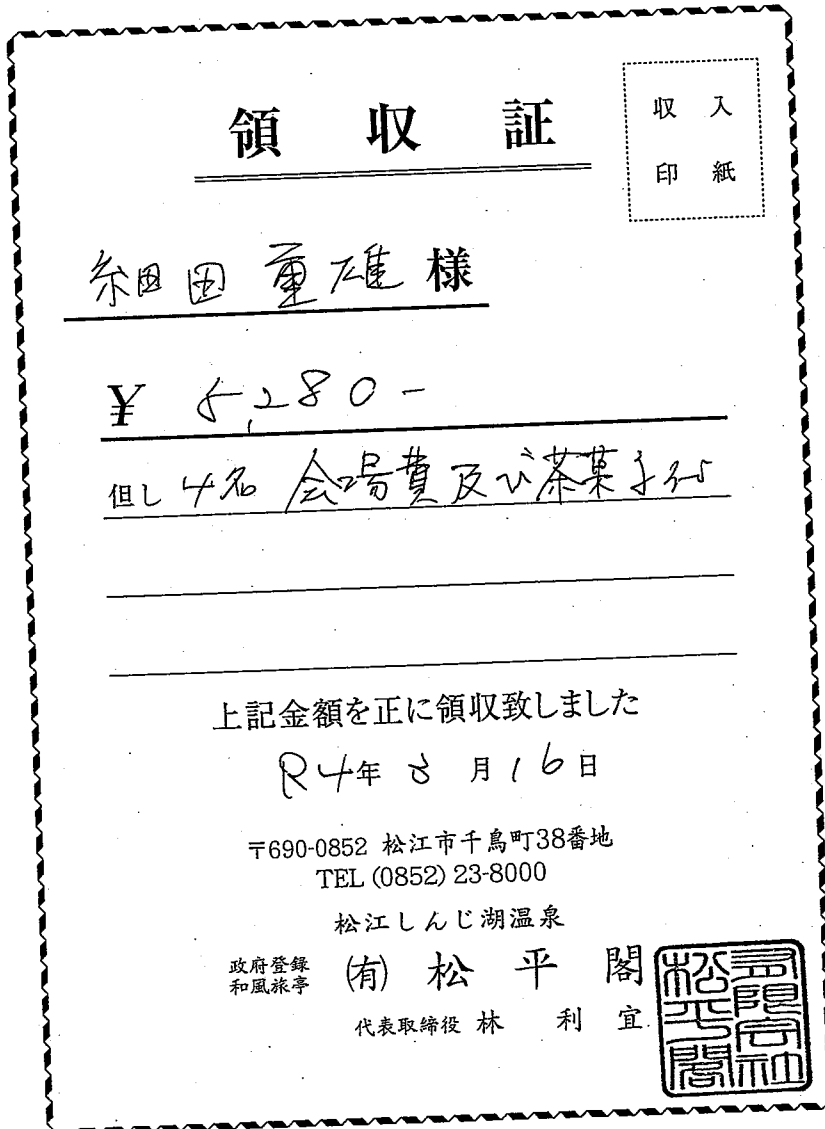 領収証
収入
印紙
細田重雄様
¥ 5,280-
但し 4名 会場費及び茶菓子代
上記金額を正に領収致しました
R4年 8月16日
〒690-0852 松江市千鳥町38番地
TEL (0852) 23-8000
松江しんじ湖温泉
政府登録
和風旅亭
(有) 松平閣
代表取締役 林 利宜
有限会社
松平閣